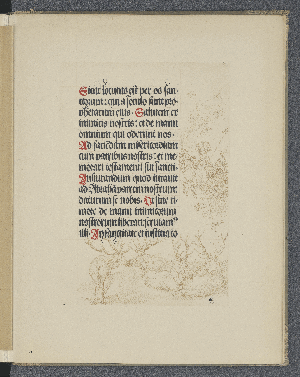 Sicut locutus est per os san-
ctorum: qui a seculo sunt pro-
phetarum eius. Salutem ex
inimicis nostris: et de manu
omnium qui oderunt nos.
Ad faciendam misericordiam
cum patribus nostris: et me-
morari testamenti sui sancti.
Iusiurandum quod iuravit
ad Abraham patrem nostrum:
daturum se nobis. Ut sine ti-
more de manu inimicorum
nostrorum liberati: serviamus
illi. In sanctitate et iusticia co